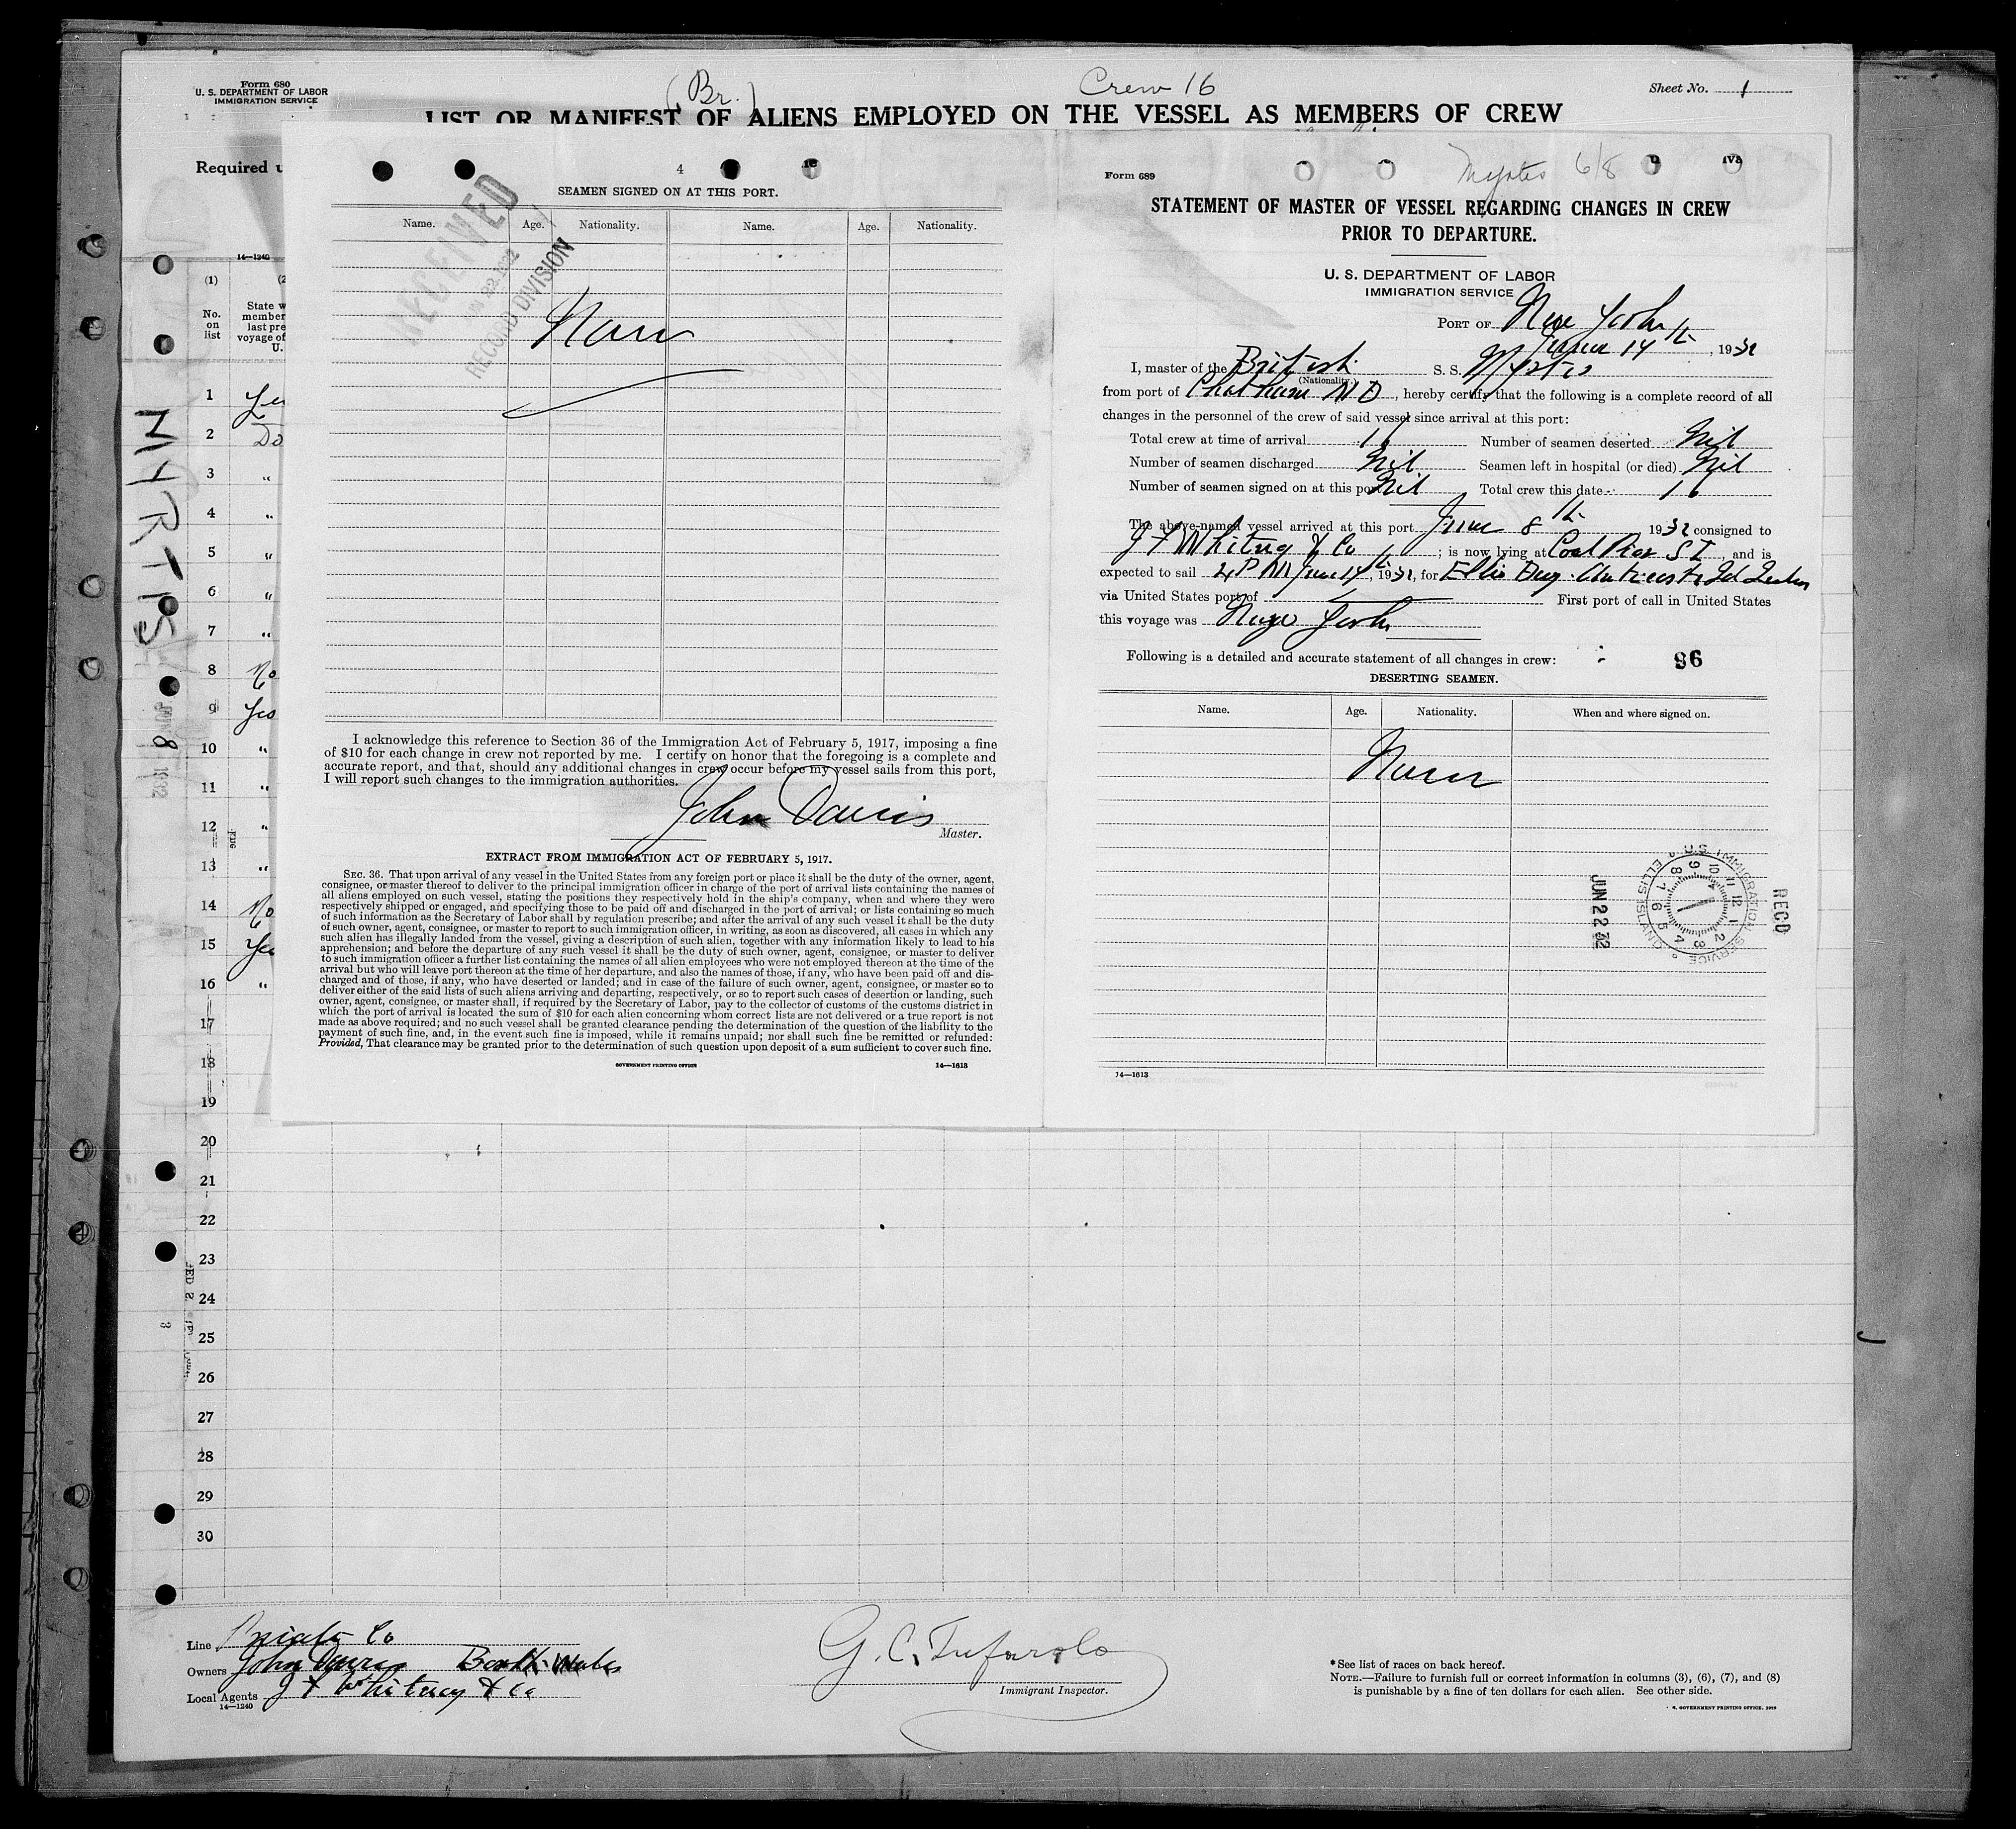 Form 680
U. S. DEPARTMENT OF LABOR
IMMIGRATION SERVICE
(Br.)
Crew 16
Sheet No. 1
LIST OR MANIFEST OF ALIENS EMPLOYED ON THE VESSEL AS MEMBERS OF CREW
Required u
14—1240
(1)
(2
No. on list
State w
member
last pre
voyage of
U.
1 Yes
2 Do
3 "
4 "
5 "
6 "
7 "
8 No
9 Yes
10 "
11 "
12 "
13 "
14 No
15 Yes
16 "
17
18
19
20
21
22
23
24
25
26
27
28
29
30
MYRTIS
JUN 8 1932
4
SEAMEN SIGNED ON AT THIS PORT.
Name. Age. Nationality. Name. Age. Nationality.
RECEIVED
JUN 22 1932
RECORD DIVISION
None
I acknowledge this reference to Section 36 of the Immigration Act of February 5, 1917, imposing a fine
of $10 for each change in crew not reported by me. I certify on honor that the foregoing is a complete and
accurate report, and that, should any additional changes in crew occur before my vessel sails from this port,
I will report such changes to the immigration authorities.
John Davis
Master.
EXTRACT FROM IMMIGRATION ACT OF FEBRUARY 5, 1917.
SEC. 36. That upon arrival of any vessel in the United States from any foreign port or place it shall be the duty of the owner, agent,
consignee, or master thereof to deliver to the principal immigration officer in charge of the port of arrival lists containing the names of
all aliens employed on such vessel, stating the positions they respectively hold in the ship's company, when and where they were
respectively shipped or engaged, and specifying those to be paid off and discharged in the port of arrival; or lists containing so much
of such information as the Secretary of Labor shall by regulation prescribe; and after the arrival of any such vessel it shall be the duty
of such owner, agent, consignee, or master to report to such immigration officer, in writing, as soon as discovered, all cases in which any
such alien has illegally landed from the vessel, giving a description of such alien, together with any information likely to lead to his
apprehension; and before the departure of any such vessel it shall be the duty of such owner, agent, consignee, or master to deliver
to such immigration officer a further list containing the names of all alien employees who were not employed thereon at the time of the
arrival but who will leave port thereon at the time of her departure, and also the names of those, if any, who have been paid off and dis-
charged and of those, if any, who have deserted or landed; and in case of the failure of such owner, agent, consignee, or master so to
deliver either of the said lists of such aliens arriving and departing, respectively, or so to report such cases of desertion or landing, such
owner, agent, consignee, or master shall, if required by the Secretary of Labor, pay to the collector of customs of the customs district in
which the port of arrival is located the sum of $10 for each alien concerning whom correct lists are not delivered or a true report is not
made as above required; and no such vessel shall be granted clearance pending the determination of the question of the liability to the
payment of such fine, and, in the event such fine is imposed, while it remains unpaid; nor shall such fine be remitted or refunded:
Provided, That clearance may be granted prior to the determination of such question upon deposit of a sum sufficient to cover such fine.
GOVERNMENT PRINTING OFFICE
14—1613
Form 689
Myrtes 6/8
STATEMENT OF MASTER OF VESSEL REGARDING CHANGES IN CREW
PRIOR TO DEPARTURE.
U. S. DEPARTMENT OF LABOR
IMMIGRATION SERVICE
PORT OF New York
June 14th, 1932
I, master of the British S. S. Myrtis
(Nationality.)
from port of Chatham N B, hereby certify that the following is a complete record of all
changes in the personnel of the crew of said vessel since arrival at this port:
Total crew at time of arrival 16 Number of seamen deserted Nil
Number of seamen discharged Nil Seamen left in hospital (or died) Nil
Number of seamen signed on at this port Nil Total crew this date 16
The above-named vessel arrived at this port June 8th 1932 consigned to
J F Whitney & Co; is now lying at Coal Pier S I, and is
expected to sail 4 PM June 14th, 1932, for Ellis Bay Anticosti Id Quebec
via United States port of First port of call in United States
this voyage was New York
Following is a detailed and accurate statement of all changes in crew:
96
DESERTING SEAMEN.
Name. Age. Nationality. When and where signed on.
None
U.S. IMMIGRATION SERVICE ELLIS ISLAND
RECD
JUN 22 32
14—1613
Line Private Co
Owners John Davies
Local Agents J F Whitney & Co
14—1240
G. C. Tufarolo
Immigrant Inspector.
*See list of races on back hereof.
NOTE.—Failure to furnish full or correct information in columns (3), (6), (7), and (8)
is punishable by a fine of ten dollars for each alien. See other side.
GOVERNMENT PRINTING OFFICE, 1929